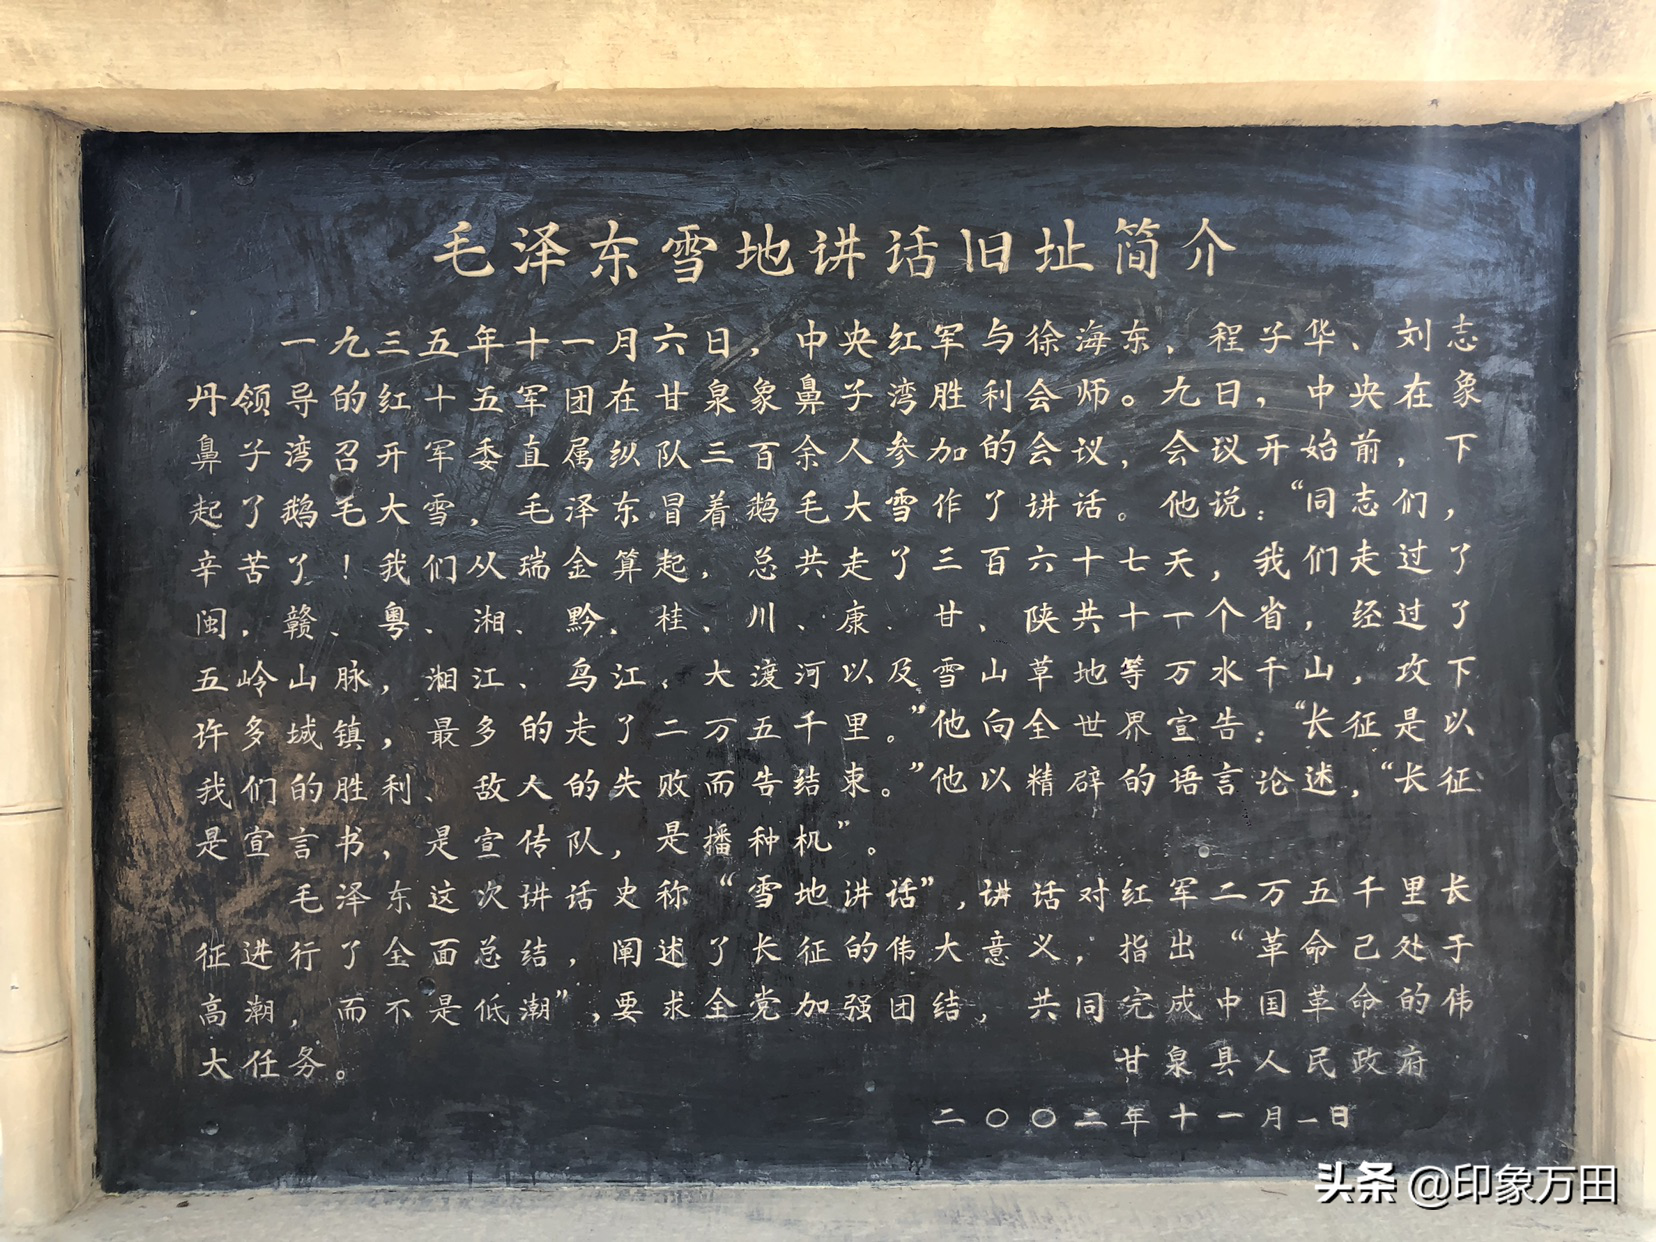 毛泽东雪地讲话旧址简介
一九三五年十一月六日，中央红军与徐海东、程子华、刘志
丹领导的红十五军团在甘泉象鼻子湾胜利会师。九日，中央在象
鼻子湾召开军委直属纵队三百余人参加的会议，会议开始前，下
起了鹅毛大雪，毛泽东冒着鹅毛大雪作了讲话。他说：“同志们，
辛苦了！我们从瑞金算起，总共走了三百六十七天，我们走过了
闽、赣、粤、湘、黔、桂、川、康、甘、陕共十一个省，经过了
五岭山脉，湘江、乌江、大渡河以及雪山草地等万水千山，攻下
许多城镇，最多的走了二万五千里。”他向全世界宣告：“长征是以
我们的胜利、敌人的失败而告结束。”他以精辟的语言论述，“长征
是宣言书，是宣传队，是播种机”。
毛泽东这次讲话史称“雪地讲话”，讲话对红军二万五千里长
征进行了全面总结，阐述了长征的伟大意义，指出“革命已处于
高潮，而不是低潮”，要求全党加强团结，共同完成中国革命的伟
大任务。 甘泉县人民政府
二〇〇二年十一月一日
头条 @印象万田